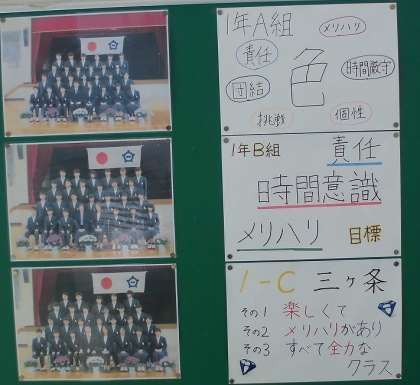 1年A組
メリハリ
責任
色
時間厳守
団結
挑戦
個性
1年B組
責任
時間意識
メリハリ
目標
1-C 三ヶ条
その1 楽しくて
その2 メリハリがあり
その3 すべて全力な
クラス